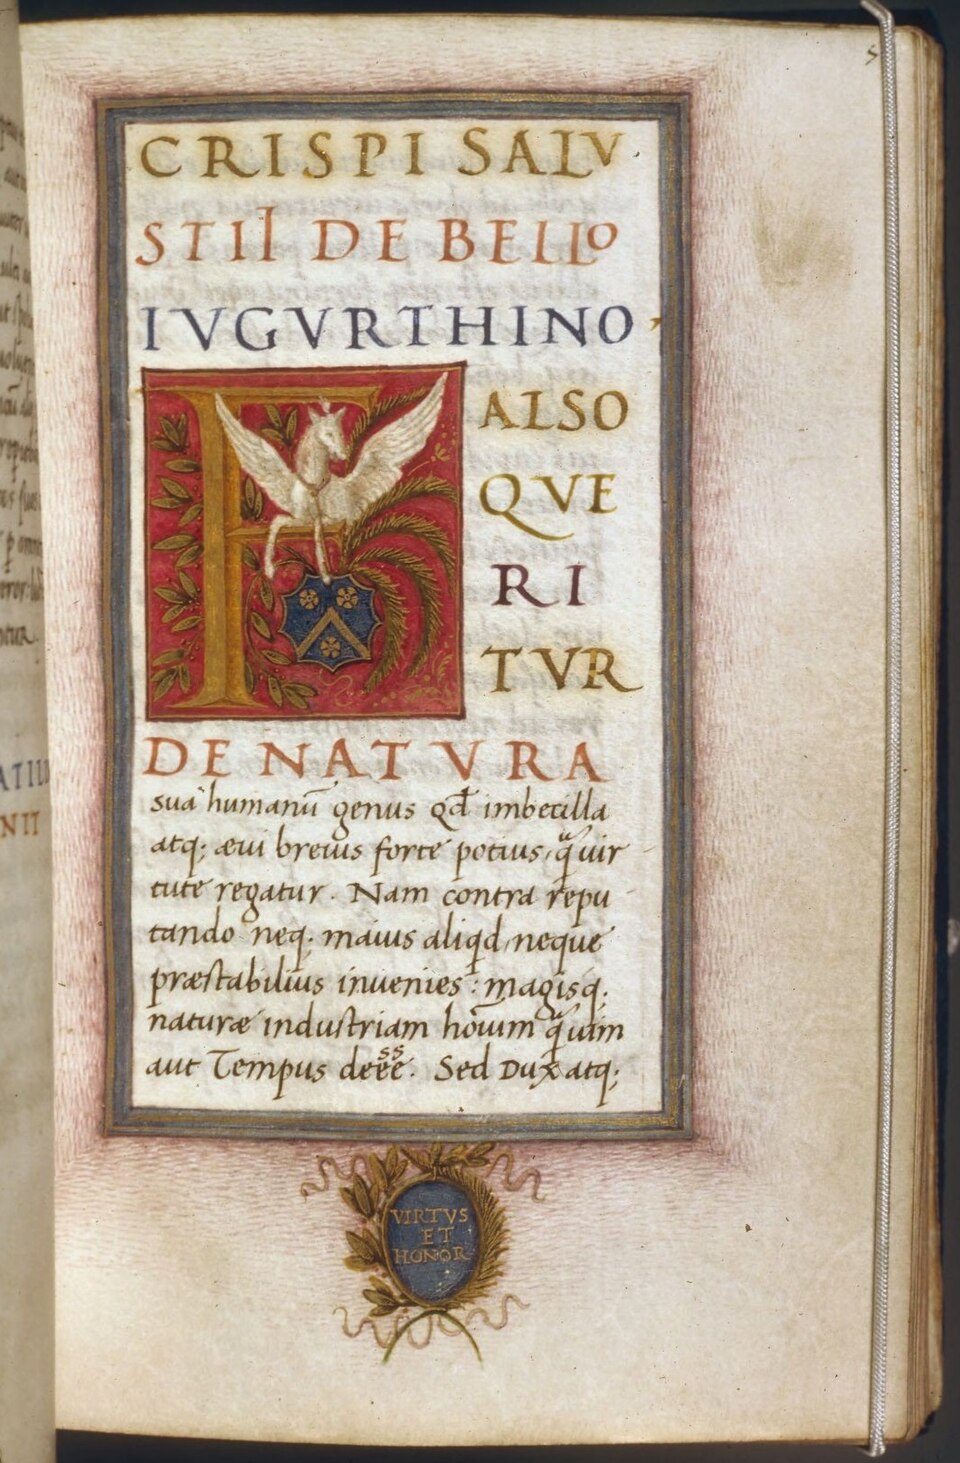 5
CRISPI SALV
STII DE BELLO
IVGVRTHINO
FALSO
QVE
RI
TVR
DE NATVRA
sua humanū genus qd̄ imbecilla
atq; æui breuis forte potius, q̃ uir
tute regatur. Nam contra repu
tando neq; maius aliqd, neque
præstabilius inuenies: magisq;
naturæ industriam hoı̄um q̃ uim
aut Tempus deēē. Sed Dux atq;
VIRTVS
ET
HONOR
ATIII
NII